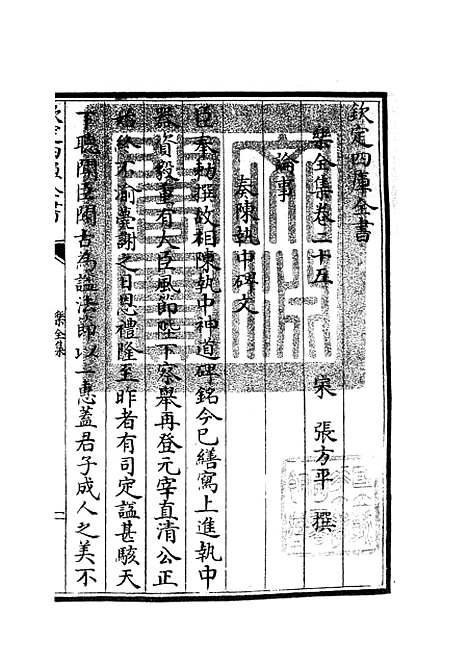 欽定四庫全書
樂全集卷二十五
宋 張方平 撰
論事
奏陳執中碑文
臣奉勅撰故相陳執中神道碑銘今已繕寫上進執中
器資毅重有大臣風節陛下察舉再登元宰直清公正
始終不渝薨謝之日恩禮隆至昨者有司定諡甚駭天
下聽聞臣聞古為諡法節以一惠蓋君子成人之美不
欽定四庫全書
樂全集